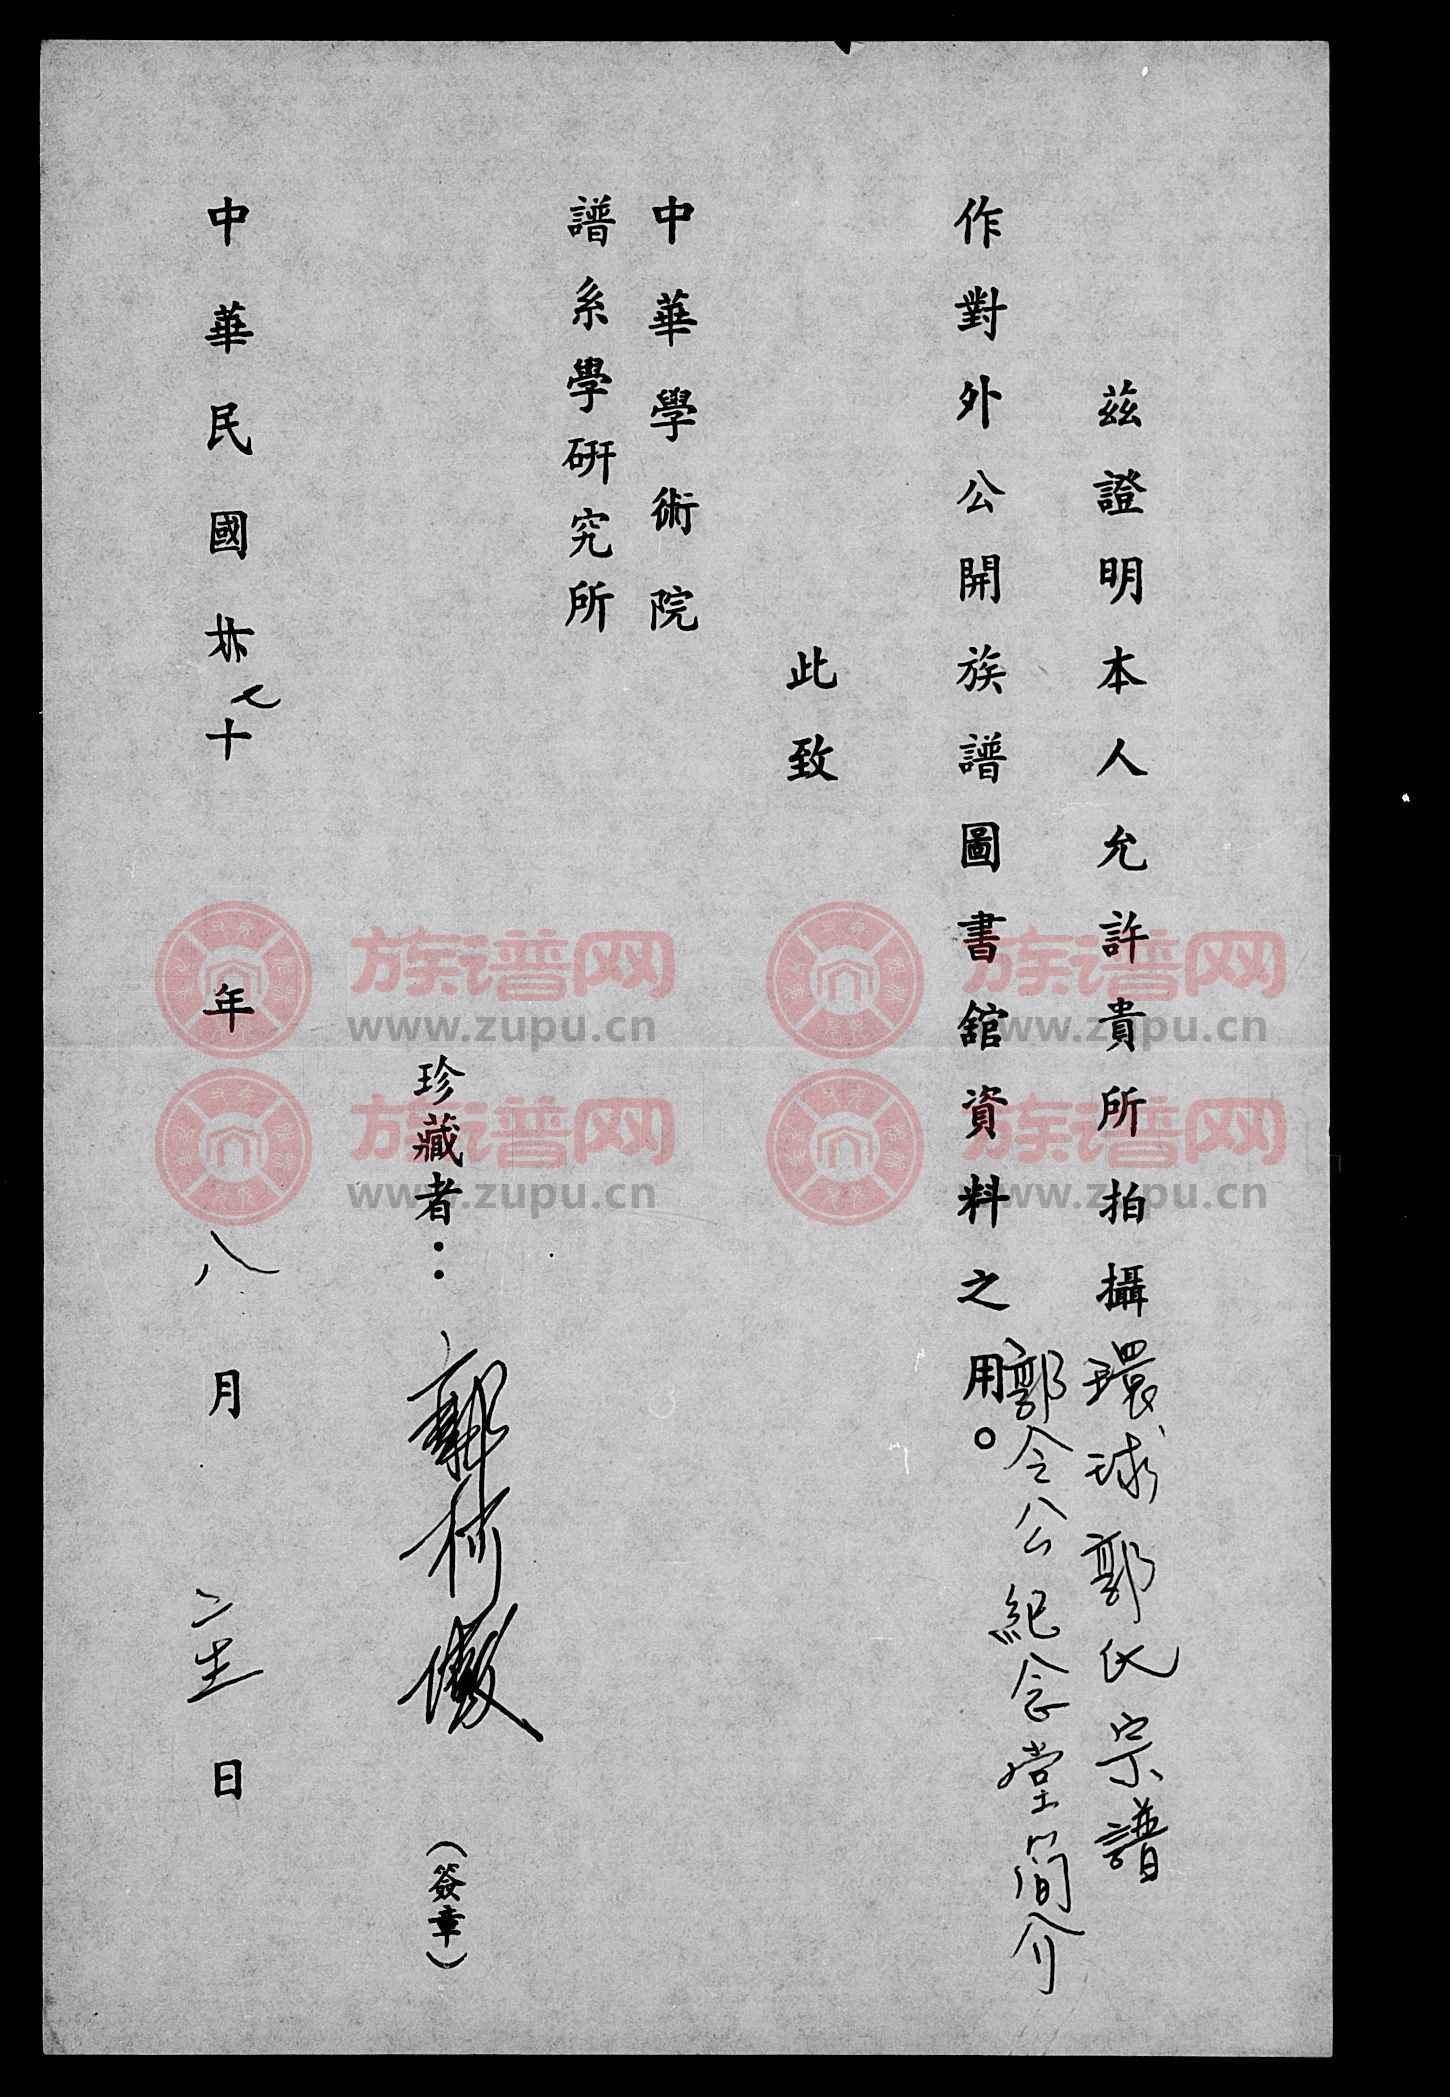 茲證明本人允許貴所拍攝環球郭氏宗譜
郭令公紀念堂簡介
作對外公開族譜圖書舘資料之用。
此致
中華學術院
譜系學研究所
珍藏者：郭
(簽章)
中華民國七十年八月日
族谱网
www.zupu.cn
族谱网
www.zupu.cn
族谱网
www.zupu.cn
族谱网
www.zupu.cn